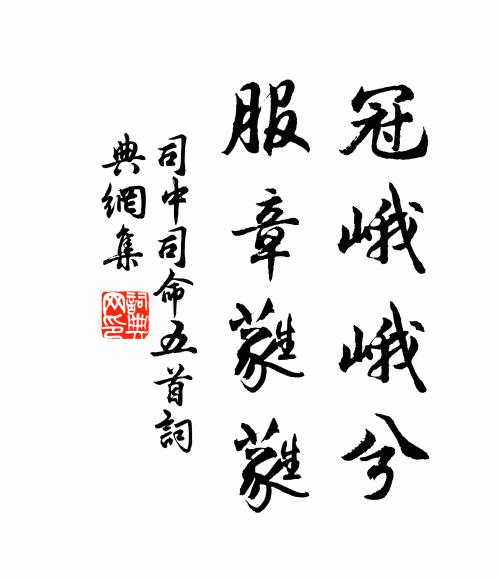 冠峨峨兮
服章蕤蕤
司中司命五首詞
典網集
詞典
网印